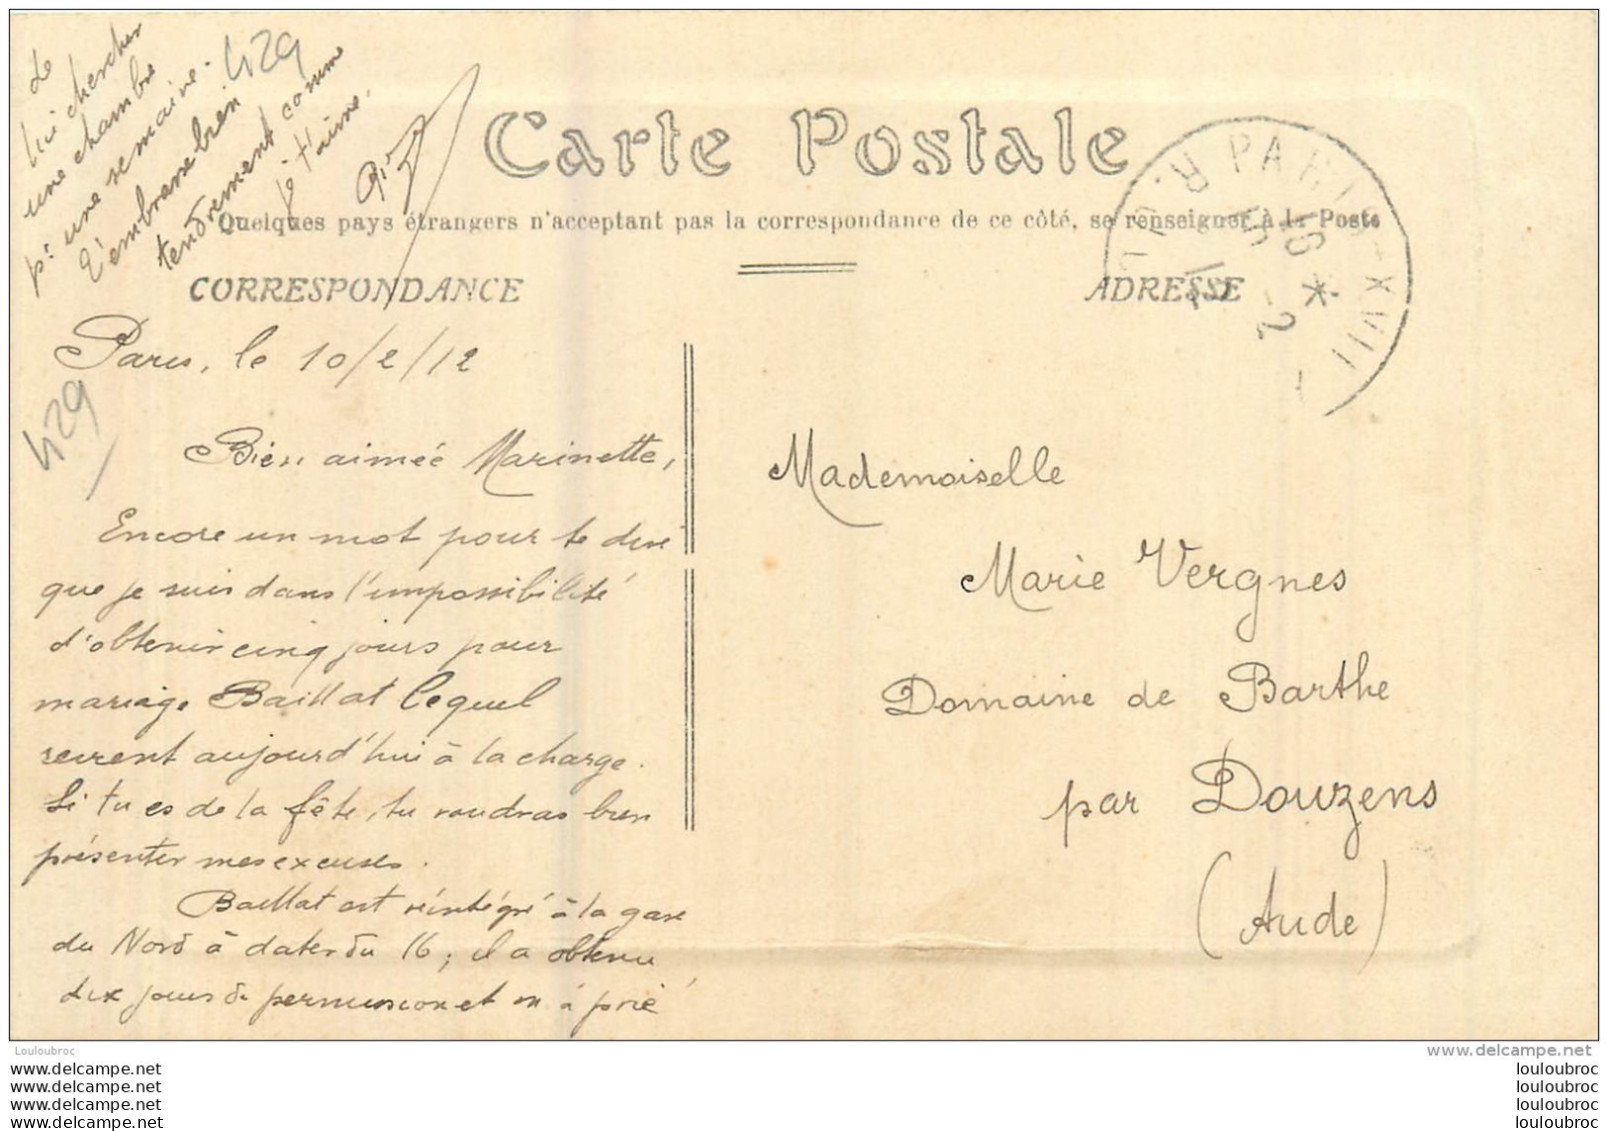 Carte Postale
Quelques pays étrangers n'acceptant pas la correspondance de ce côté, se renseigner à la Poste
CORRESPONDANCE
ADRESSE
PARIS - XVII
Paris, le 10/2/12
429
Bien aimée Marinette,
Encore un mot pour te dire
que je suis dans l'impossibilité
d'obtenir cinq jours pour
mariage Baillat lequel
revient aujourd'hui à la charge.
Si tu es de la fête, tu voudras bien
présenter mes excuses.
Baillat est réintégré à la gare
du Nord à dater du 16; il a obtenu
dix jours de permission et m'a prié
de
lui chercher
une chambre
pr une semaine.
429
T'embrasse bien
tendrement comme
je t'aime.
Mademoiselle
Marie Vergnes
Domaine de Barthe
par Douzens
(Aude)
Louloubroc
www.delcampe.net
www.delcampe.net
www.delcampe.net
www.delcampe.net
www.delcampe.net
louloubroc
louloubroc
louloubroc
louloubroc